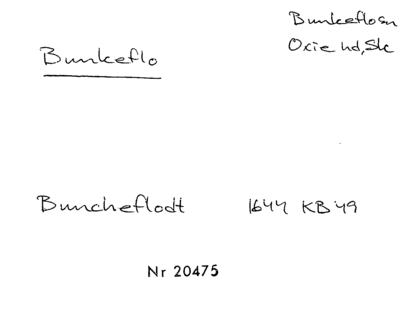 Bunkeflo
Bunkeflosn
Oxie hd, Sk
Buncheflodt 1644 KB 49
Nr 20475